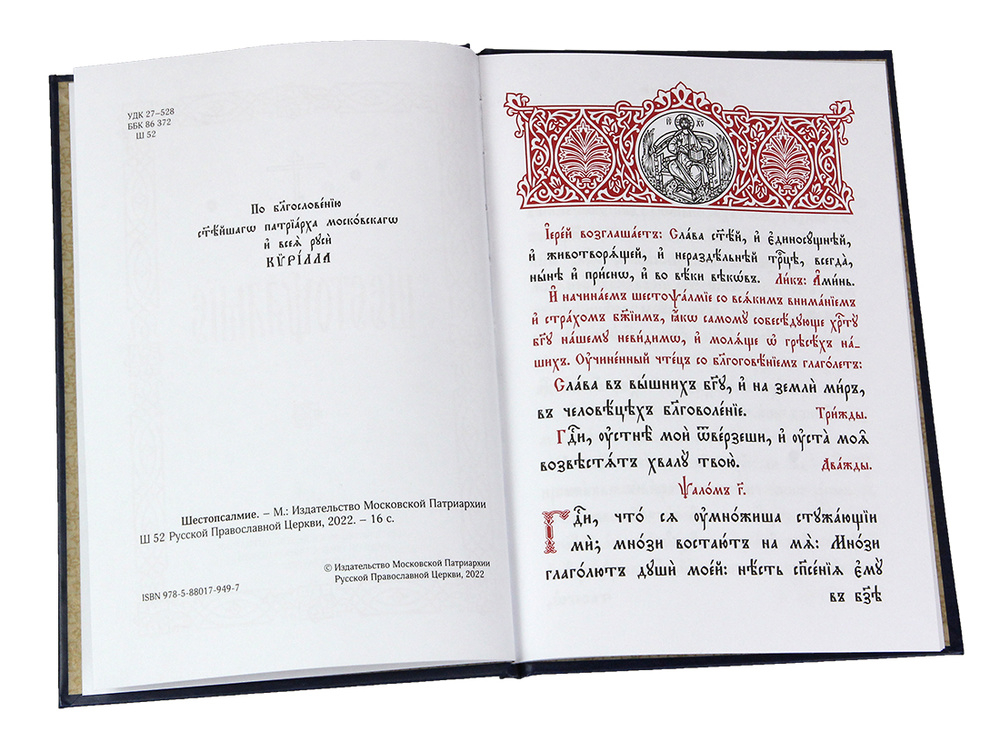 УДК 27–528
ББК 86 372
Ш 52
По бл҃гослове́нїю
ст҃ѣ́йшагѡ патрїа́рха моско́вскагѡ
и҆ всеѧ̀ рꙋсѝ
КѴРІ́ЛЛА
Шестопсалмие. – М.: Издательство Московской Патриархии
Ш 52 Русской Православной Церкви, 2022. – 16 с.
© Издательство Московской Патриархии
Русской Православной Церкви, 2022
ISBN 978-5-88017-949-7
І҆С Х҆С
І҆ере́й возглаша́етъ: Сла́ва ст҃ѣ́й, и҆ є҆диносꙋ́щнѣй,
и҆ животворѧ́щей, и҆ нераздѣ́льнѣй трⷪ҇цѣ, всегда̀,
ны́нѣ и҆ при́снѡ, и҆ во вѣ́ки вѣкѡ́въ. Ли́къ: А҆ми́нь.
И҆ начина́емъ шестоѱа́лмїе со всѧ́кимъ внима́нїемъ
и҆ стра́хомъ бж҃їимъ, ꙗ҆́кѡ самомꙋ̀ собесѣ́дꙋюще хрⷭ҇тꙋ̀
бг҃ꙋ на́шемꙋ неви́димѡ, и҆ молѧ́ще ѡ҆ грѣсѣ́хъ на-
шихъ. Оу҆чине́нный чте́цъ со бл҃гоговѣ́нїемъ глаго́летъ:
Сла́ва въ вы́шнихъ бг҃ꙋ, и҆ на землѝ ми́ръ,
въ человѣ́цѣхъ бл҃говоле́нїе. Три́жды.
Гдⷭ҇и, ᲂу҆стнѣ̀ моѝ ѿве́рзеши, и҆ ᲂу҆ста̀ моѧ̑
возвѣстѧ́тъ хвалꙋ̀ твою̀. Два́жды.
Ѱало́мъ г҃.
Гдⷭ҇и, что́ сѧ ᲂу҆мно́жиша стꙋжа́ющїи
мѝ; мно́зи востаю́тъ на мѧ̀: Мно́зи
глаго́лютъ дꙋшѝ мое́й: нѣ́сть сп҃се́нїѧ є҆мꙋ̀
въ бз҃ѣ